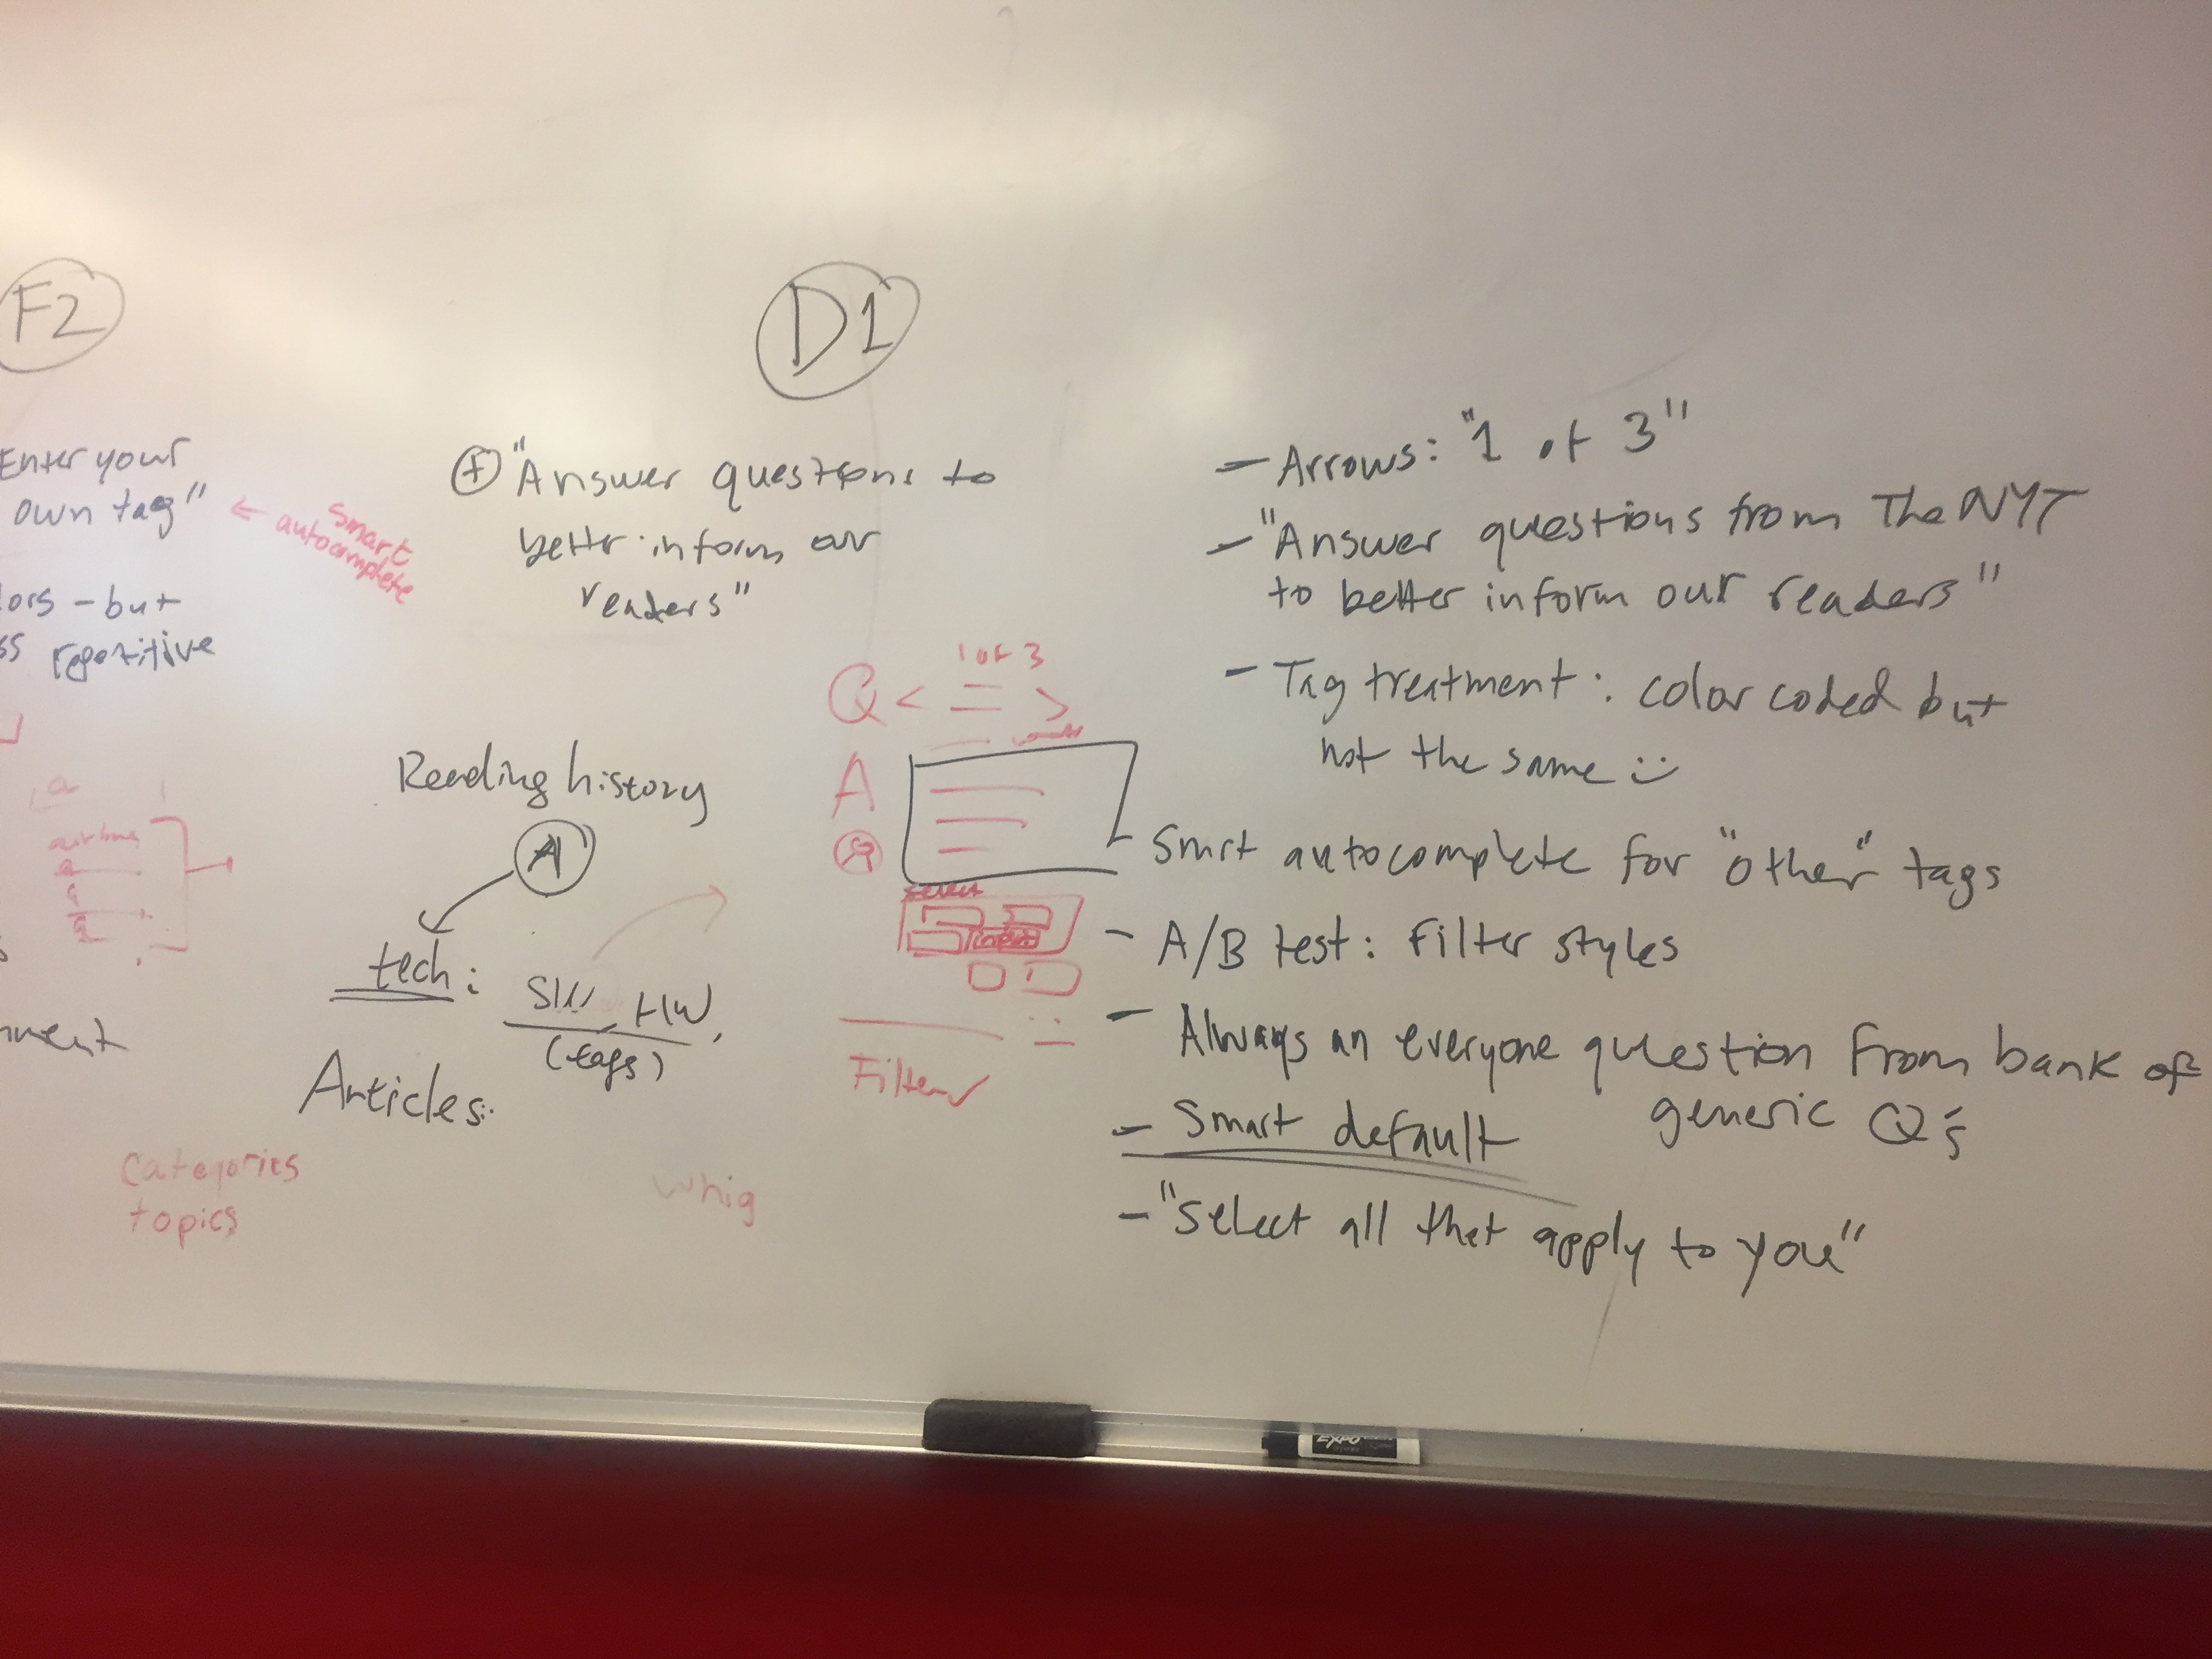 F2
Enter your
own tag"
← smart
autocomplete
ors - but
ss repetitive
a
nment
Categories
topics
D1
+ "Answer questions to
better inform our
readers"
Reading history
A
tech:
SW, HW,
(tags)
Articles:
whig
1 of 3
Q < >
A
select
input
Filter
- Arrows: "1 of 3"
- "Answer questions from The NYT
to better inform our readers"
- Tag treatment: color coded but
not the same :)
Smrt autocomplete for "other" tags
- A/B test: Filter styles
- Always an everyone question from bank of
generic Q's
- Smart default
- "Select all that apply to you"
EXPO